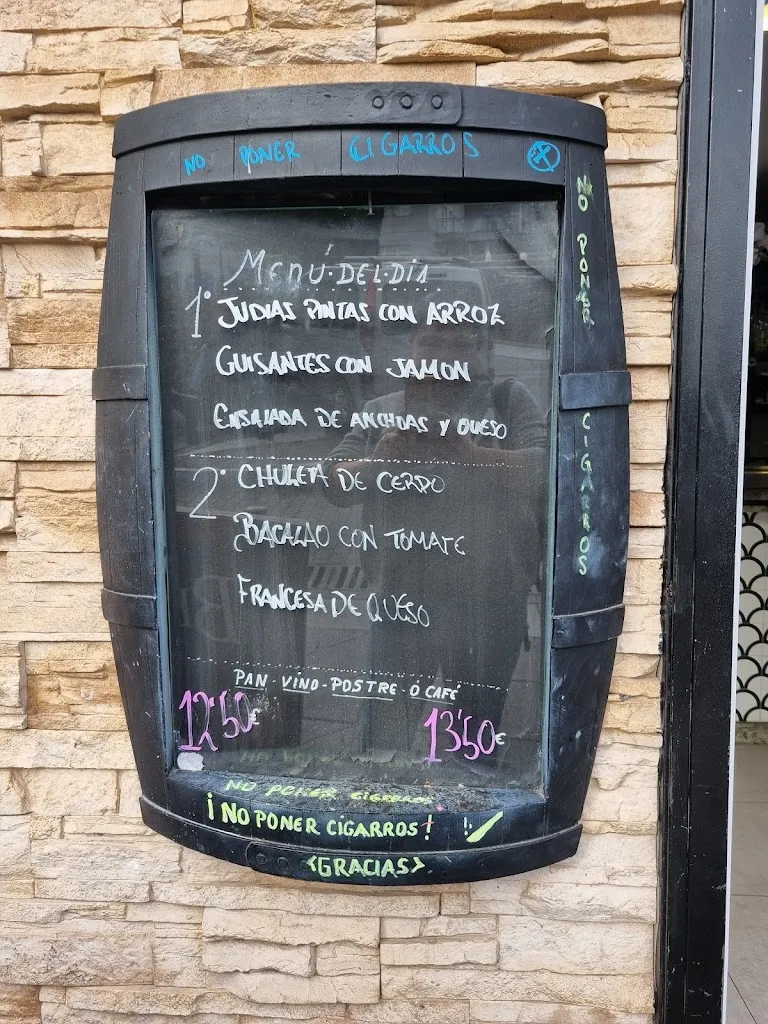 NO PONER CIGARROS
NO PONER CIGARROS
MENÚ·DEL·DIA
1° JUDIAS PINTAS CON ARROZ
GUISANTES CON JAMON
ENSALADA DE ANCHOAS Y QUESO
2° CHULETA DE CERDO
BACALAO CON TOMATE
FRANCESA DE QUESO
PAN - VINO - POSTRE - Ó CAFÉ
12'50€ 13'50€
NO PONER CIGARROS
¡NO PONER CIGARROS!
<GRACIAS>